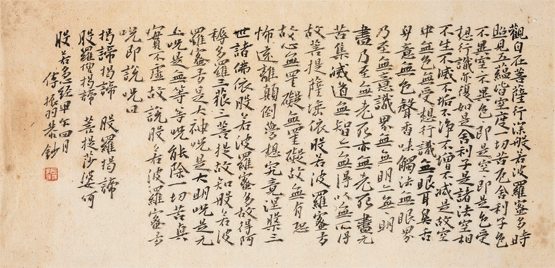 觀自在菩薩行深般若波羅蜜多時
照見五蘊皆空度一切苦厄舍利子色
不異空空不異色色即是空空即是色受
想行識亦復如是舍利子是諸法空相
不生不滅不垢不淨不增不減是故空
中無色無受想行識無眼耳鼻舌
身意無色聲香味觸法無眼界
乃至無意識界無無明亦無無明
盡乃至無老死亦無老死盡無
苦集滅道無智亦無得以無所得
故菩提薩埵依般若波羅蜜多
故心無罣礙無罣礙故無有恐
怖遠離顛倒夢想究竟涅槃三
世諸佛依般若波羅蜜多故得阿
耨多羅三藐三菩提故知般若波
羅蜜多是大神咒是大明咒是无
上咒是無等等咒能除一切苦真
實不虛故說般若波羅蜜多
咒即說咒曰
揭諦揭諦 般羅揭諦
般羅僧揭諦 菩提莎婆訶
般若心經 甲午四月
鈔